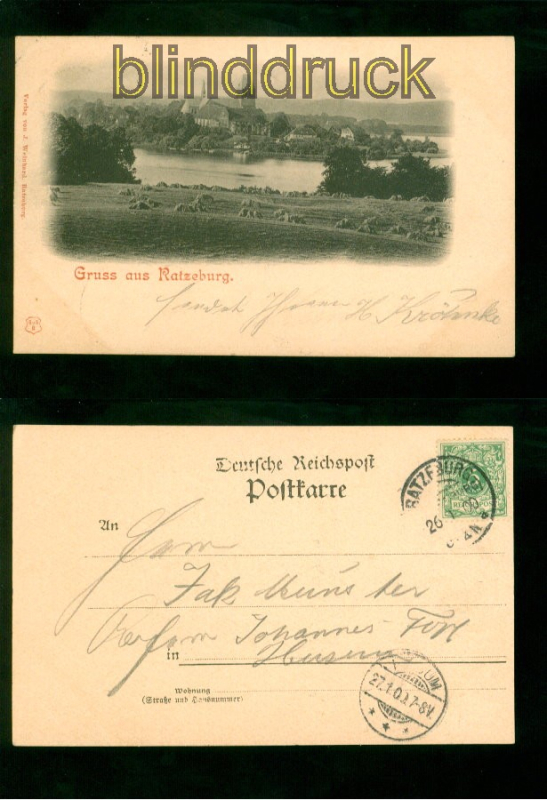 blinddruck
Verlag von J. Ratzeburg.
Gruss aus Ratzeburg.
sendet Ihnen H. Kröhnke
Deutsche Reichspost
Postkarte
RATZEBURG
26
An
Herrn
Johannes
in Husum
Wohnung
(Straße und Hausnummer)
HUSUM
27.1.00.7-8V.